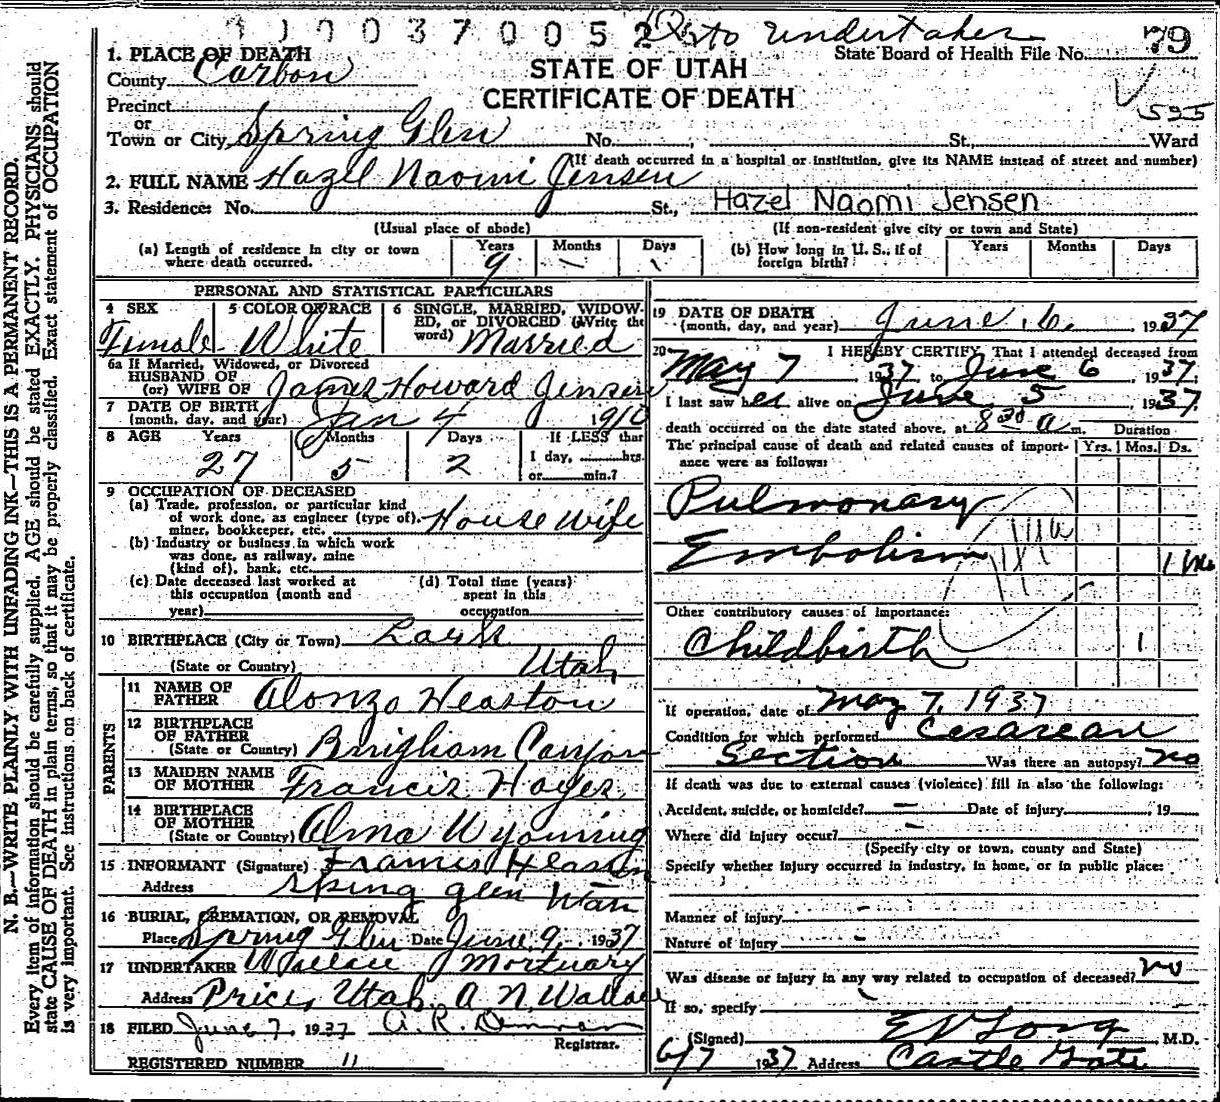 1 0 0 3 7 0 0 5 2 to undertaker 79
State Board of Health File No.
1. PLACE OF DEATH
County Carbon
STATE OF UTAH
CERTIFICATE OF DEATH
535
Precinct
or
Town or City Spring Glen No. St., Ward
(If death occurred in a hospital or institution, give its NAME instead of street and number)
2. FULL NAME Hazel Naomi Jensen
3. Residence: No. St., Hazel Naomi Jensen
(Usual place of abode) (If non-resident give city or town and State)
(a) Length of residence in city or town where death occurred. Years 9 Months — Days
(b) How long in U. S., if of foreign birth? Years Months Days
PERSONAL AND STATISTICAL PARTICULARS
4 SEX Female
5 COLOR OR RACE White
6 SINGLE, MARRIED, WIDOWED, or DIVORCED (Write the word) Married
6a If Married, Widowed, or Divorced
HUSBAND OF
(or) WIFE OF James Howard Jensen
7 DATE OF BIRTH
(month, day, and year) Jan 4 1910
8 AGE Years 27 Months 5 Days 2 If LESS than
1 day, hrs.
or min.?
9 OCCUPATION OF DECEASED
(a) Trade, profession, or particular kind
of work done, as engineer (type of),
miner, bookkeeper, etc. House Wife
(b) Industry or business in which work
was done, as railway, mine
(kind of), bank, etc.
(c) Date deceased last worked at
this occupation (month and
year)
(d) Total time (years)
spent in this
occupation
10 BIRTHPLACE (City or Town) Lark
(State or Country) Utah
PARENTS
11 NAME OF
FATHER Alonzo Heaston
12 BIRTHPLACE
OF FATHER
(State or Country) Bingham Canyon
13 MAIDEN NAME
OF MOTHER Francis Hayes
14 BIRTHPLACE
OF MOTHER
(State or Country) Alma Wyoming
15 INFORMANT (Signature) Francis Heaston
Address Spring glen Utah
16 BURIAL, CREMATION, OR REMOVAL
Place Spring Glen Date June 9, 1937
17 UNDERTAKER Wallace Mortuary
Address Price, Utah. A N. Wallace
18 FILED June 7, 1937 A. R.
Registrar.
REGISTERED NUMBER 11
19 DATE OF DEATH
(month, day, and year) June 6, 1937
20 I HEREBY CERTIFY, That I attended deceased from
May 7 1937 to June 6, 1937.
I last saw her alive on June 5 1937.
death occurred on the date stated above, at 8 30 a m. Duration
The principal cause of death and related causes of importance were as follows: Yrs. Mos. Ds.
Pulmonary
Embolism
Other contributory causes of importance:
Childbirth 1
If operation, date of May 7, 1937
Condition for which performed Cesarean
Section Was there an autopsy? no
If death was due to external causes (violence) fill in also the following:
Accident, suicide, or homicide? — Date of injury 19
Where did injury occur? —
(Specify city or town, county and State)
Specify whether injury occurred in industry, in home, or in public place:
Manner of injury -
Nature of injury -
Was disease or injury in any way related to occupation of deceased? no
If so, specify
(Signed) E V Long M.D.
6/7 1937 Address Castle Gate
N. B.—WRITE PLAINLY WITH UNFADING INK—THIS IS A PERMANENT RECORD.
Every item of information should be carefully supplied. AGE should be stated EXACTLY. PHYSICIANS should
state CAUSE OF DEATH in plain terms, so that it may be properly classified. Exact statement of OCCUPATION
is very important. See instructions on back of certificate.